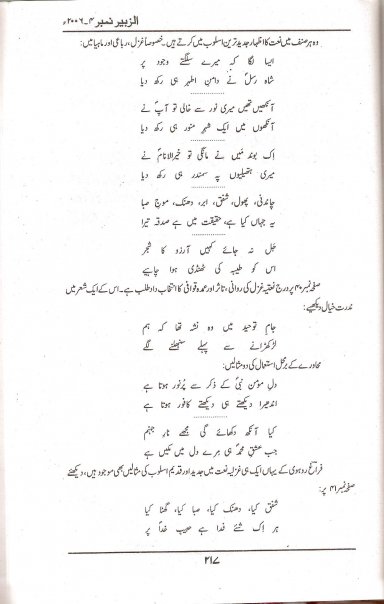 الزبیر نمبر ۴۔۲۰۰۶ء
وہ ہر صنف میں نعت کا اظہار جدید ترین اسلوب میں کرتے ہیں۔ خصوصاً غزل، رباعی اور ماہیا میں:
ایسا لگا کہ میرے سلگتے وجود پر
شاہ رسلؐ نے دامنِ اطہر ہی رکھ دیا
آنکھیں تھیں میری نور سے خالی تو آپؐ نے
آنکھوں میں ایک شہرِ منور ہی رکھ دیا
اِک بوند مَیں نے مانگی تو خیرالانامؐ نے
میری ہتھیلیوں پہ سمندر ہی رکھ دیا
چاندنی، پھول، شفق، ابر، دھنک، موجِ صبا
یہ جہاں کیا ہے، حقیقت میں ہے صدقہ تیرا
جَل نہ جائے کہیں آرزو کا شجر
اس کو طیبہ کی ٹھنڈی ہوا چاہیے
صفحہ نمبر ۴۰ پر درج نعتیہ غزل کی روانی، تاثر اور عمدہ قوافی کا انتخاب داد طلب ہے۔ اس کے ایک شعر میں
ندرت خیال دیکھیے:
جامِ توحید میں وہ نشہ تھا کہ ہم
لڑکھڑانے سے پہلے سنبھلنے لگے
محاورے کے برمحل استعمال کی دو مثالیں:
دلِ مومن نبیؐ کے ذکر سے پُرنور ہوتا ہے
اندھیرا دیکھتے ہی دیکھتے کافور ہوتا ہے
کیا آنکھ دکھائے گی مجھے نارِ جہنم
جب عشقِ محمدؐ ہی مرے دل میں مکیں ہے
کے یہاں ایک ہی غزلیہ نعت میں جدید اور قدیم اسلوب کی مثالیں بھی موجود ہیں، دیکھئے
صفحہ نمبر ۴۱ پر:
شفق کیا، دھنک کیا، صبا کیا، گھٹا کیا
ہر اِک شئے فدا ہے حبیبِ خداؐ پر
۲۱۷